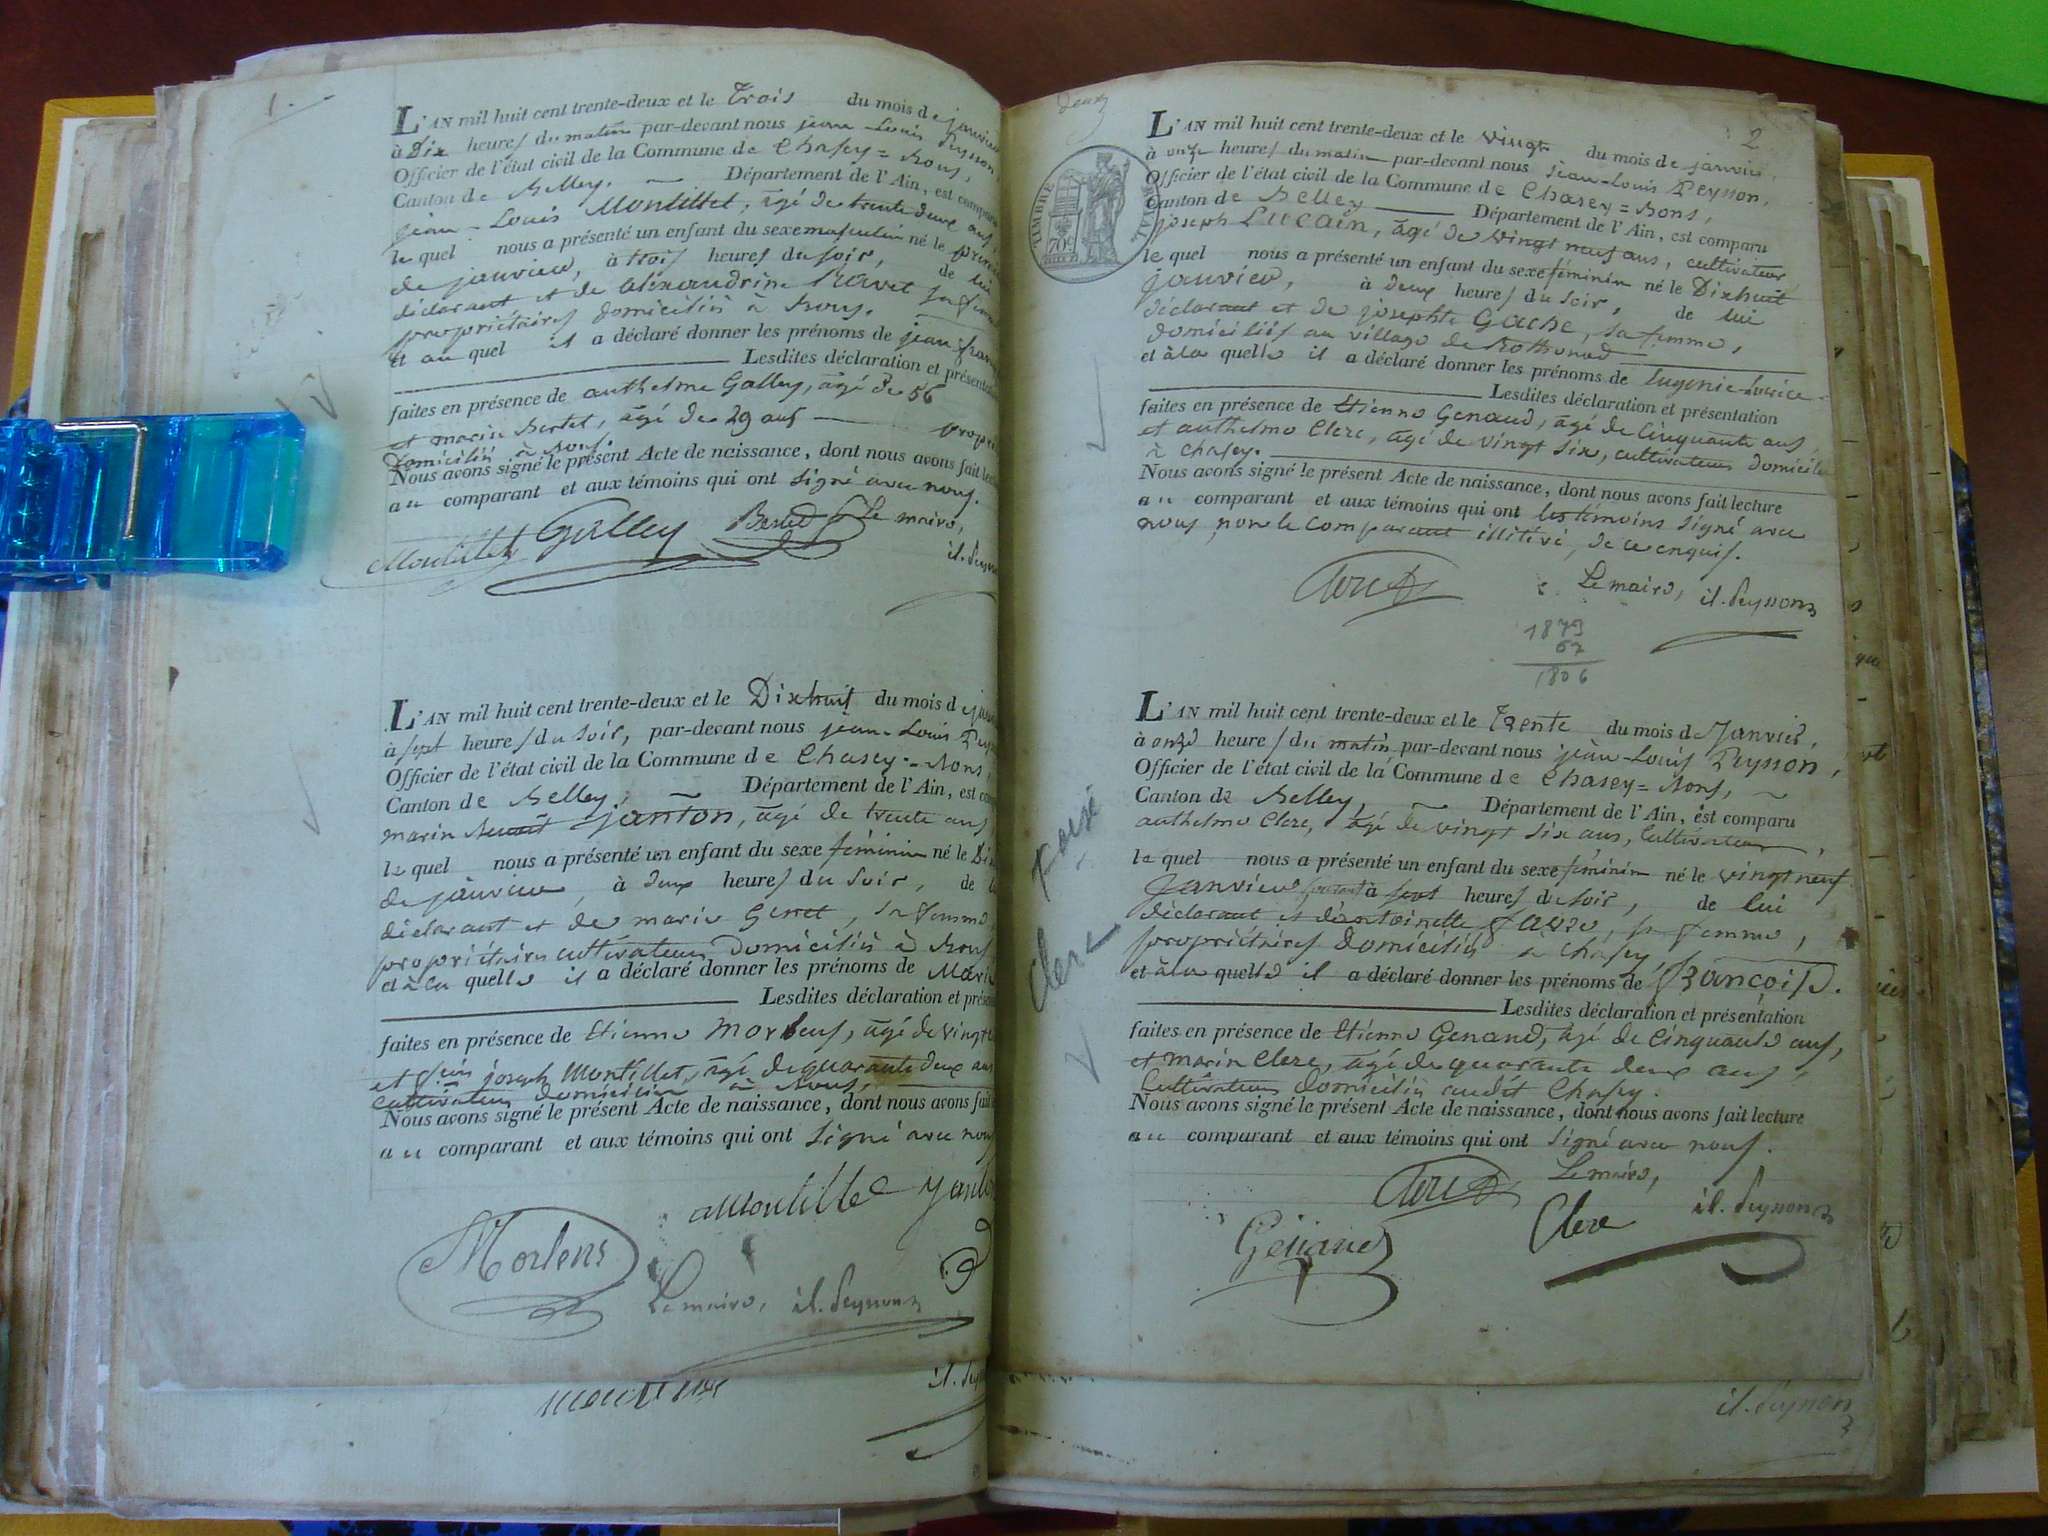 1.
L'AN mil huit cent trente-deux et le Trois du mois de janvier
à Dix heures du matin par-devant nous jean-Louis Peysson,
Officier de l'état civil de la Commune de Chasey=Bons,
Canton de Belley. Département de l'Ain, est comparu
jean-Louis Montillet, âgé de trente deux ans,
le quel nous a présenté un enfant du sexe masculin né le premier
de janvier, à trois heures du soir, de lui
déclarant et de alexandrine sa femme
propriétaires domiciliés à Bons.
et au quel il a déclaré donner les prénoms de jean
Lesdites déclaration et présentation
faites en présence de anthelme Galley, âgé de 56
et marin Bertet, âgé de 29 ans
domiciliés à Bons.
Nous avons signé le présent Acte de naissance, dont nous avons fait lecture
au comparant et aux témoins qui ont signé avec nous.
Montillet Galley Bertet Le maire,
jL. Peysson
L'AN mil huit cent trente-deux et le Dixhuit du mois de janvier
à sept heures du soir, par-devant nous jean-Louis Peysson
Officier de l'état civil de la Commune de Chasey=Bons,
Canton de Belley, Département de l'Ain, est comparu
marin janton, âgé de trente ans
le quel nous a présenté un enfant du sexe féminin né le
de janvier à deux heures du soir, de
déclarant et de marie Genet, sa femme
propriétaires cultivateurs domiciliés à Bons
et à la quelle il a déclaré donner les prénoms de Marie
Lesdites déclaration et présentation
faites en présence de Etienne Mortens, âgé de vingt
et joseph Montillet, âgé de quarante deux ans
cultivateurs domiciliés à Bons,
Nous avons signé le présent Acte de naissance, dont nous avons fait
au comparant et aux témoins qui ont signé avec nous
Montillet janton
Mortens
Le maire, jL. Peysson
jL. Peysson
deux
2
TIMBRE
70c
L'AN mil huit cent trente-deux et le vingt du mois de janvier,
à onze heures du matin par-devant nous jean-Louis Peysson,
Officier de l'état civil de la Commune de Chasey=Bons,
Canton de Belley Département de l'Ain, est comparu
joseph Lucain, âgé de vingt neuf ans, cultivateur,
le quel nous a présenté un enfant du sexe féminin né le Dixhuit
janvier, à deux heures du soir, de lui
déclarant et de josephte Gache, sa femme,
domiciliés au village de Rothonod
et à la quelle il a déclaré donner les prénoms de
Lesdites déclaration et présentation
faites en présence de Etienne Genaud, âgé de cinquante ans,
et anthelme Clerc, âgé de vingt six, cultivateurs domiciliés
à Chasey.
Nous avons signé le présent Acte de naissance, dont nous avons fait lecture
au comparant et aux témoins qui ont les témoins signé avec
nous, non le comparant illitéré, de ce enquis.
Clerc Le maire, jL. Peysson
1873
67
1806
L'AN mil huit cent trente-deux et le Trente du mois de Janvier,
à onze heures du matin par-devant nous jean-Louis Peysson,
Officier de l'état civil de la Commune de Chasey=Bons,
Canton de Belley, Département de l'Ain, est comparu
anthelme Clerc, âgé de vingt six ans, Cultivateur,
le quel nous a présenté un enfant du sexe féminin né le vingt neuf
Janvier à sept heures du soir, de lui
déclarant et d'antoinette favre, sa femme,
propriétaires domiciliés à Chasey,
et à la quelle il a déclaré donner les prénoms de
Lesdites déclaration et présentation
faites en présence de Etienne Genaud, âgé de Cinquante ans,
et marin Clerc, âgé de quarante deux ans,
Cultivateurs domiciliés audit Chasey.
Nous avons signé le présent Acte de naissance, dont nous avons fait lecture
au comparant et aux témoins qui ont signé avec nous.
Clerc Le maire,
Genaud Clerc jL. Peysson
Clerc
jL. Peysson